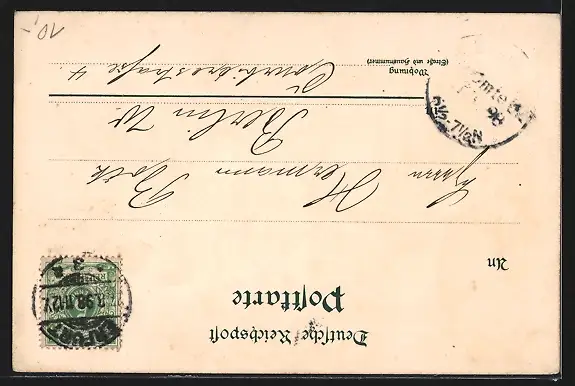 Deutsche Reichspost
Postkarte
An
Herrn Hermann Bock
Berlin W
Courbièrestraße 4
Wohnung
(Straße und Hausnummer)
ERFURT
98 11-12V
* 3 a
98
6½-7½N
10.-